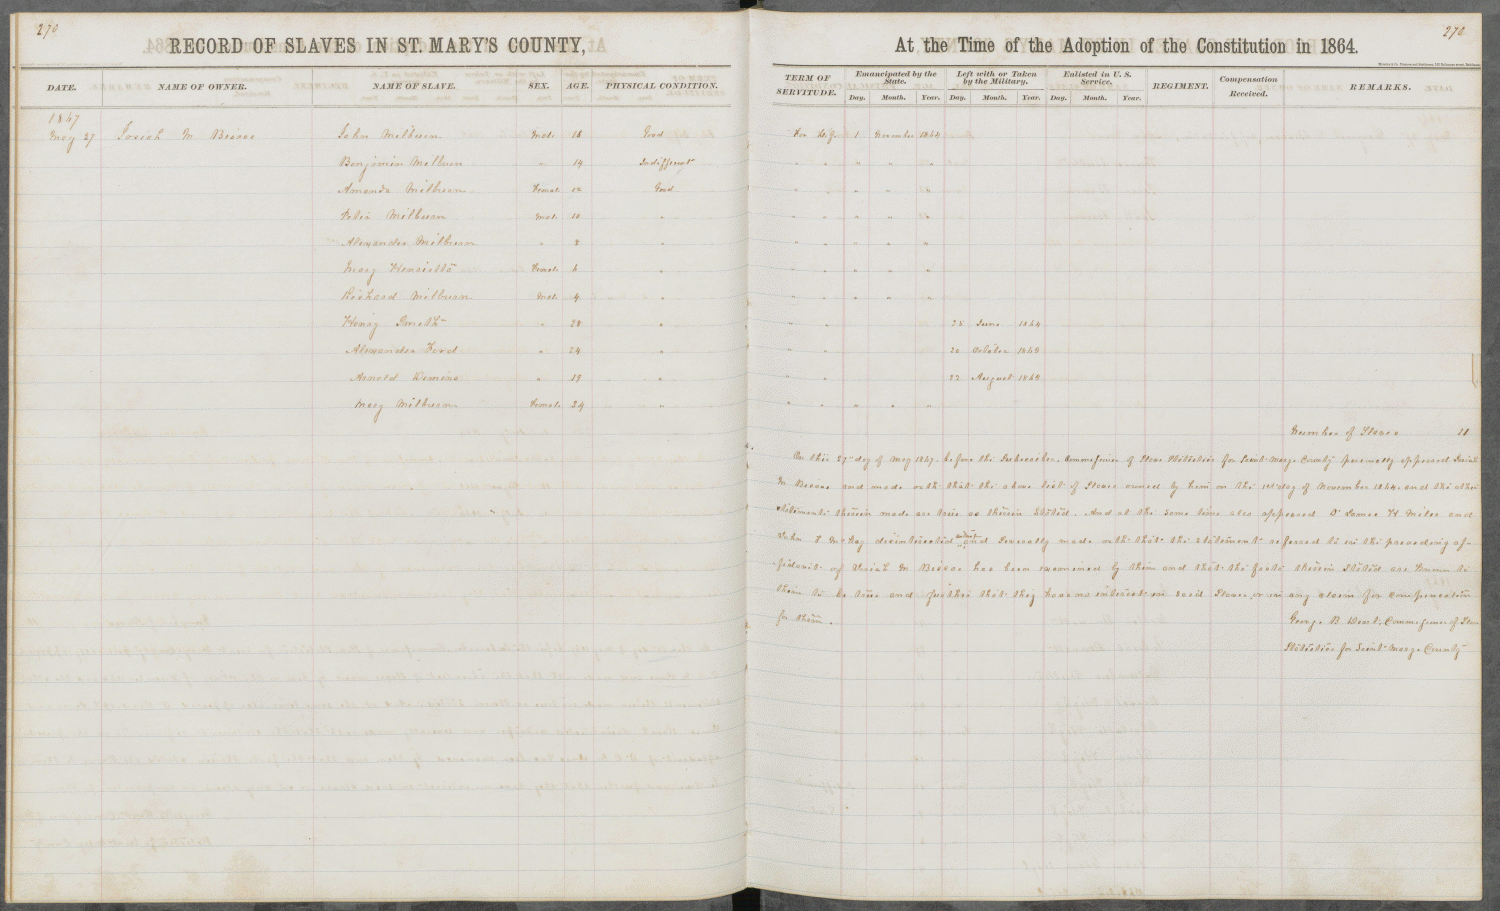 270
RECORD OF SLAVES IN ST. MARY'S COUNTY,
DATE. NAME OF OWNER. NAME OF SLAVE. SEX. AGE. PHYSICAL CONDITION.
1867
May 27 Josiah M Biscoe John Milburn Male 16 Good
Benjamin Milburn " 14 Indifferent
Amanda Milburn Female 12 Good
Milburn Male 10 "
Alexander Milburn " 8 "
Mary Henrietta Female 6 "
Richard Milburn Male 4 "
Henry Smith " 28 "
Alexander Ford " 24 "
Arnold " 19 "
Mary Milburn Female 34 "
270
At the Time of the Adoption of the Constitution in 1864.
TERM OF SERVITUDE. Emancipated by the State. Left with or Taken by the Military. Enlisted in U. S. Service. REGIMENT. Compensation Received. REMARKS.
Day. Month. Year. Day. Month. Year. Day. Month. Year.
For Life 1 November 1864
" " " " "
" " " " "
" " " " "
" " " " "
" " " " "
" " " " "
" " 25 June 1864
" " 20 October 1863
" " 22 August 1863
" " " " "
Number of Slaves 11
On this 27th day of May 1867, before the Subscriber, Commissioner of Slave Statistics for Saint Marys County personally appeared Josiah
M Biscoe and made oath that the above list of Slaves owned by him on the 1st day of November 1864, and the other
statements therein made are true as therein stated. And at the same time also appeared James H Miles and
John F McKay disinterested and severally made oath that the statement referred to in the preceeding af-
fidavit of Josiah M Biscoe has been examined by them and that the facts therein stated are known to
them to be true and further that they have no interest in said Slaves, or in any claim for compensation
for them. George B Dent, Commissioner of Slave
Statistics for Saint Marys County